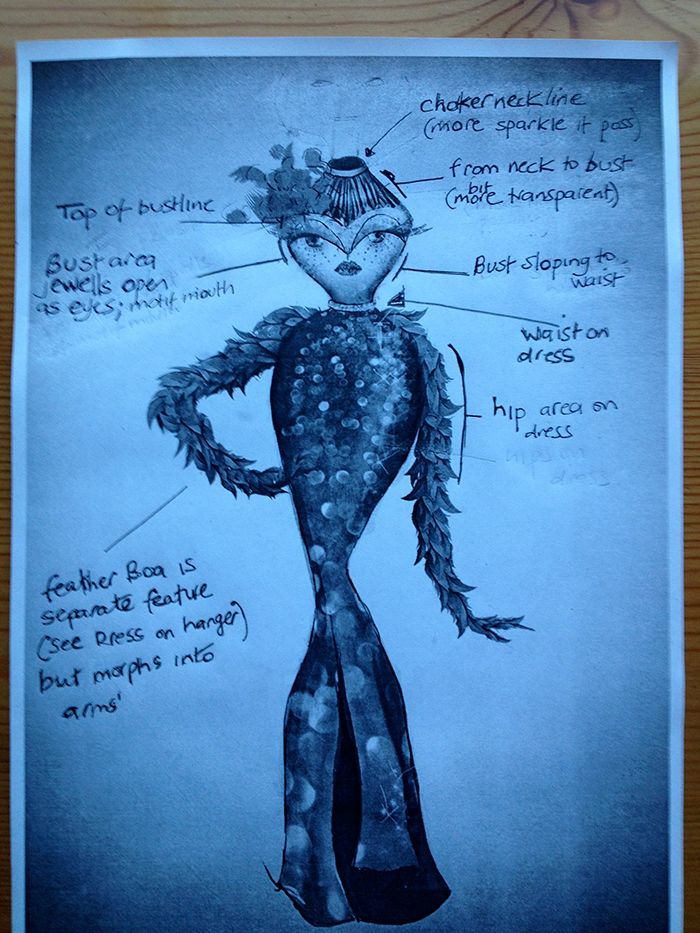 choker neckline
(more sparkle if poss)
from neck to bust
bit
(more transparent)
Top of bustline
Bust area
jewells open
as eyes; motif mouth
Bust sloping to
waist
waist on
dress
hip area on
dress
hips on
dress
feather Boa is
separate feature
(see Dress on hanger)
but morphs into
arms'